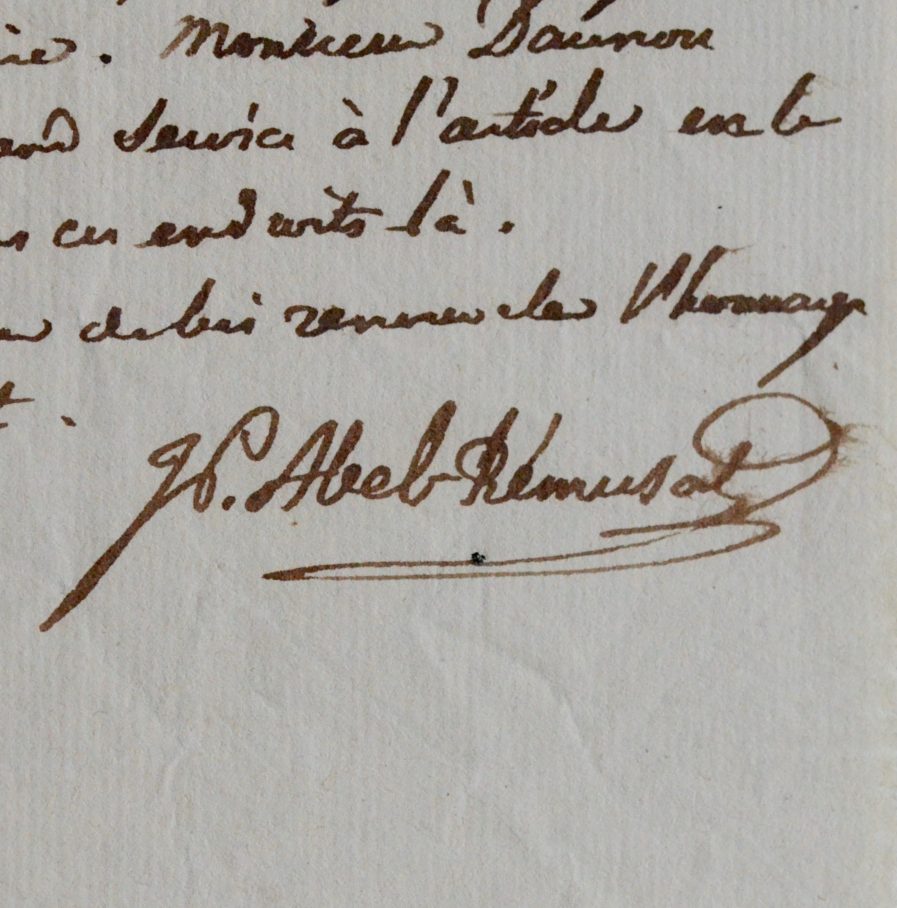 ire. Monsieur Daunou
and service à l'article en le
s ces endroits là.
de lui renouveler l'hommage
t.
JP. Abel-Rémusat